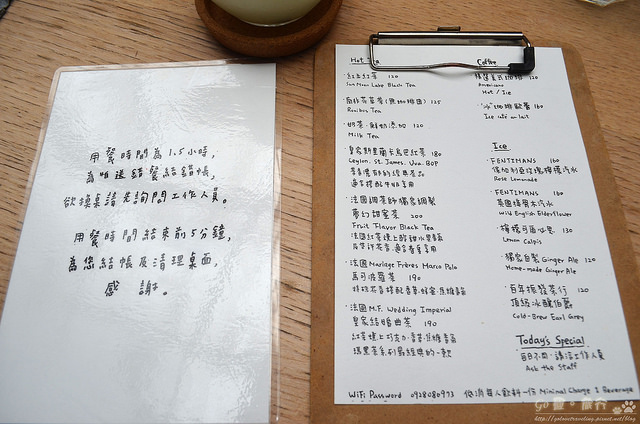 用餐時間為1.5小時,
為咱送錯餐結錯帳,
欲換桌請先詢問工作人員。
用餐時間結束前5分鐘,
為您結帳及清理桌面,
感謝。
Hot Tea
紅茶 120
Sun Moon Lake Black Tea
125
Rooibos Tea
奶茶·鮮奶添加 120
Milk Tea
皇家 180
Ceylon. St. James. Uva. BOP
法國
夢幻甜蜜茶 200
Fruit Flavor Black Tea
法國 Mariage Frères Marco Polo
馬可波羅茶 190
法國 M.F. Wedding Imperial
皇家結婚曲茶 190
Coffee
精選美式咖啡 120
Americano
Hot / Ice
冰咖啡歐蕾 160
Ice café au lait
Ice
FENTIMANS 160
Rose Lemonade
FENTIMANS 160
英國
Wild English Elderflower
檸檬可爾必思 130
Lemon Calpis
獨家自製 Ginger Ale 120
Home-made Ginger Ale
百年振發茶行 120
頂級冰釀伯爵
Cold-Brew Earl Grey
Today's Special
每日不同·請洽工作人員
Ask the staff
WiFi Password 0928080973 低消每人飲料一份 Minimal Charge 1 Beverage